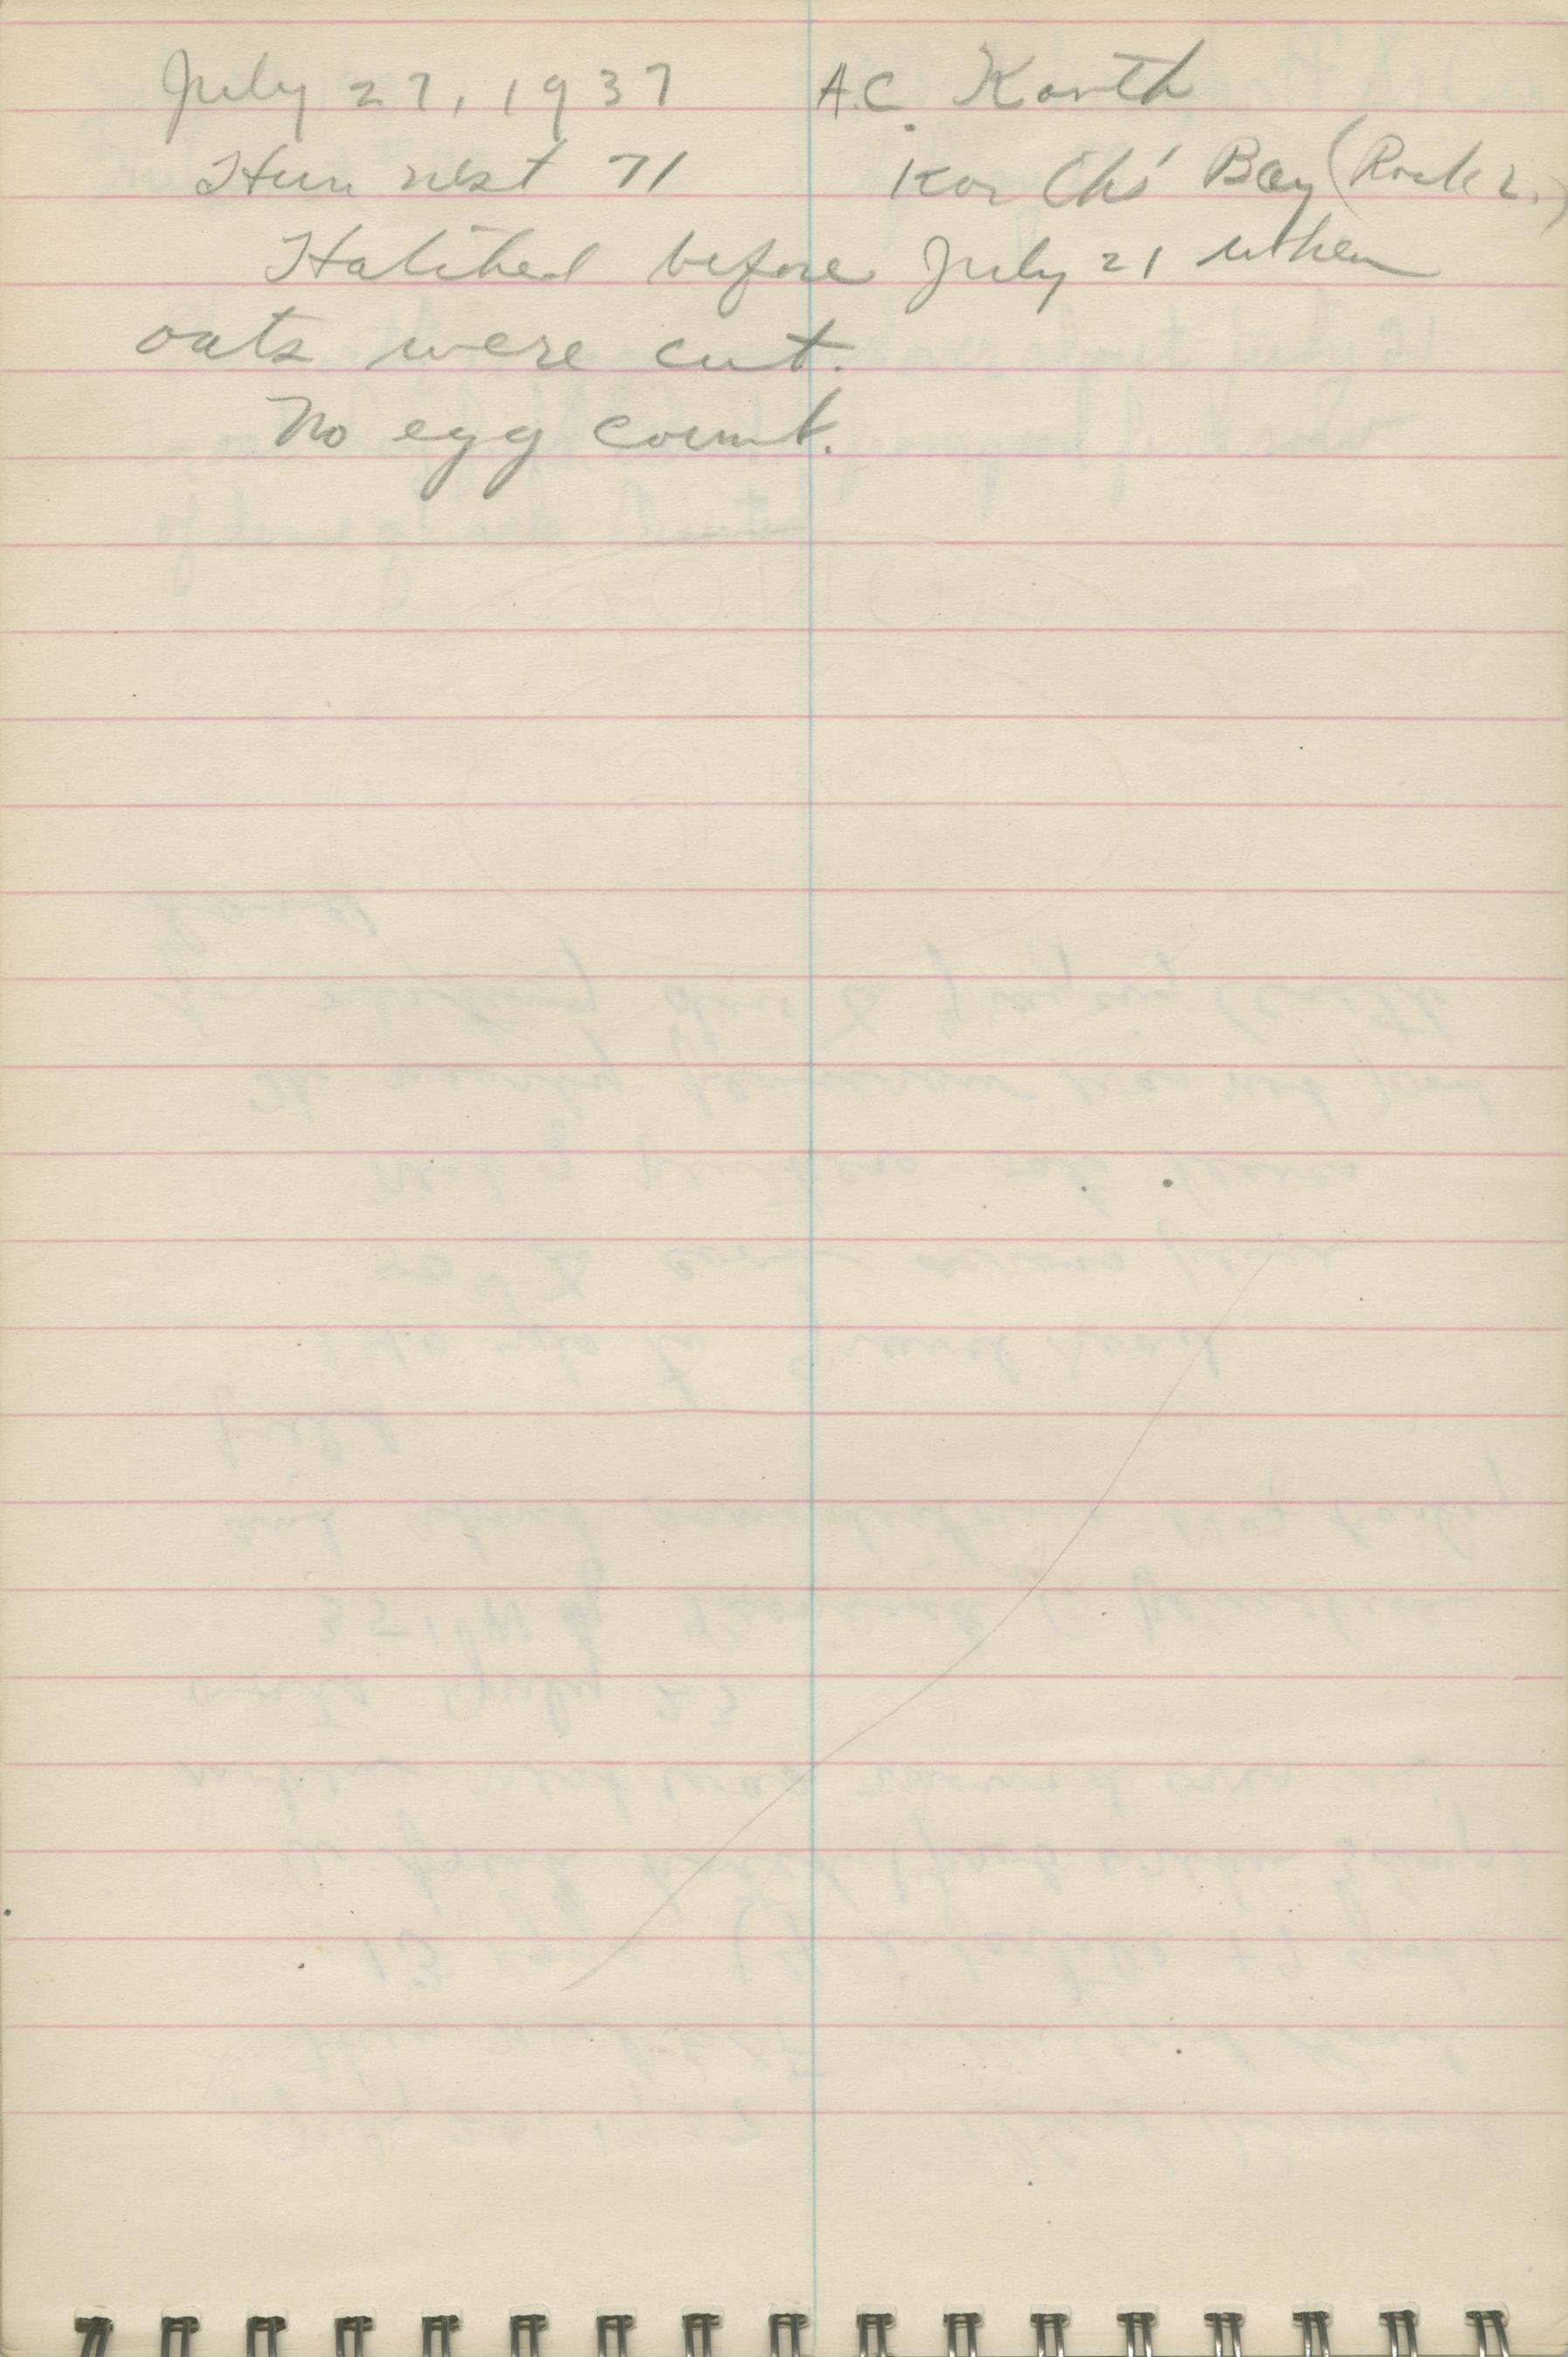 July 27, 1937 A.C. Karth
Hun nest 71 Bay (Rock L.)
Hatched before July 21 when
oats were cut.
No egg count.